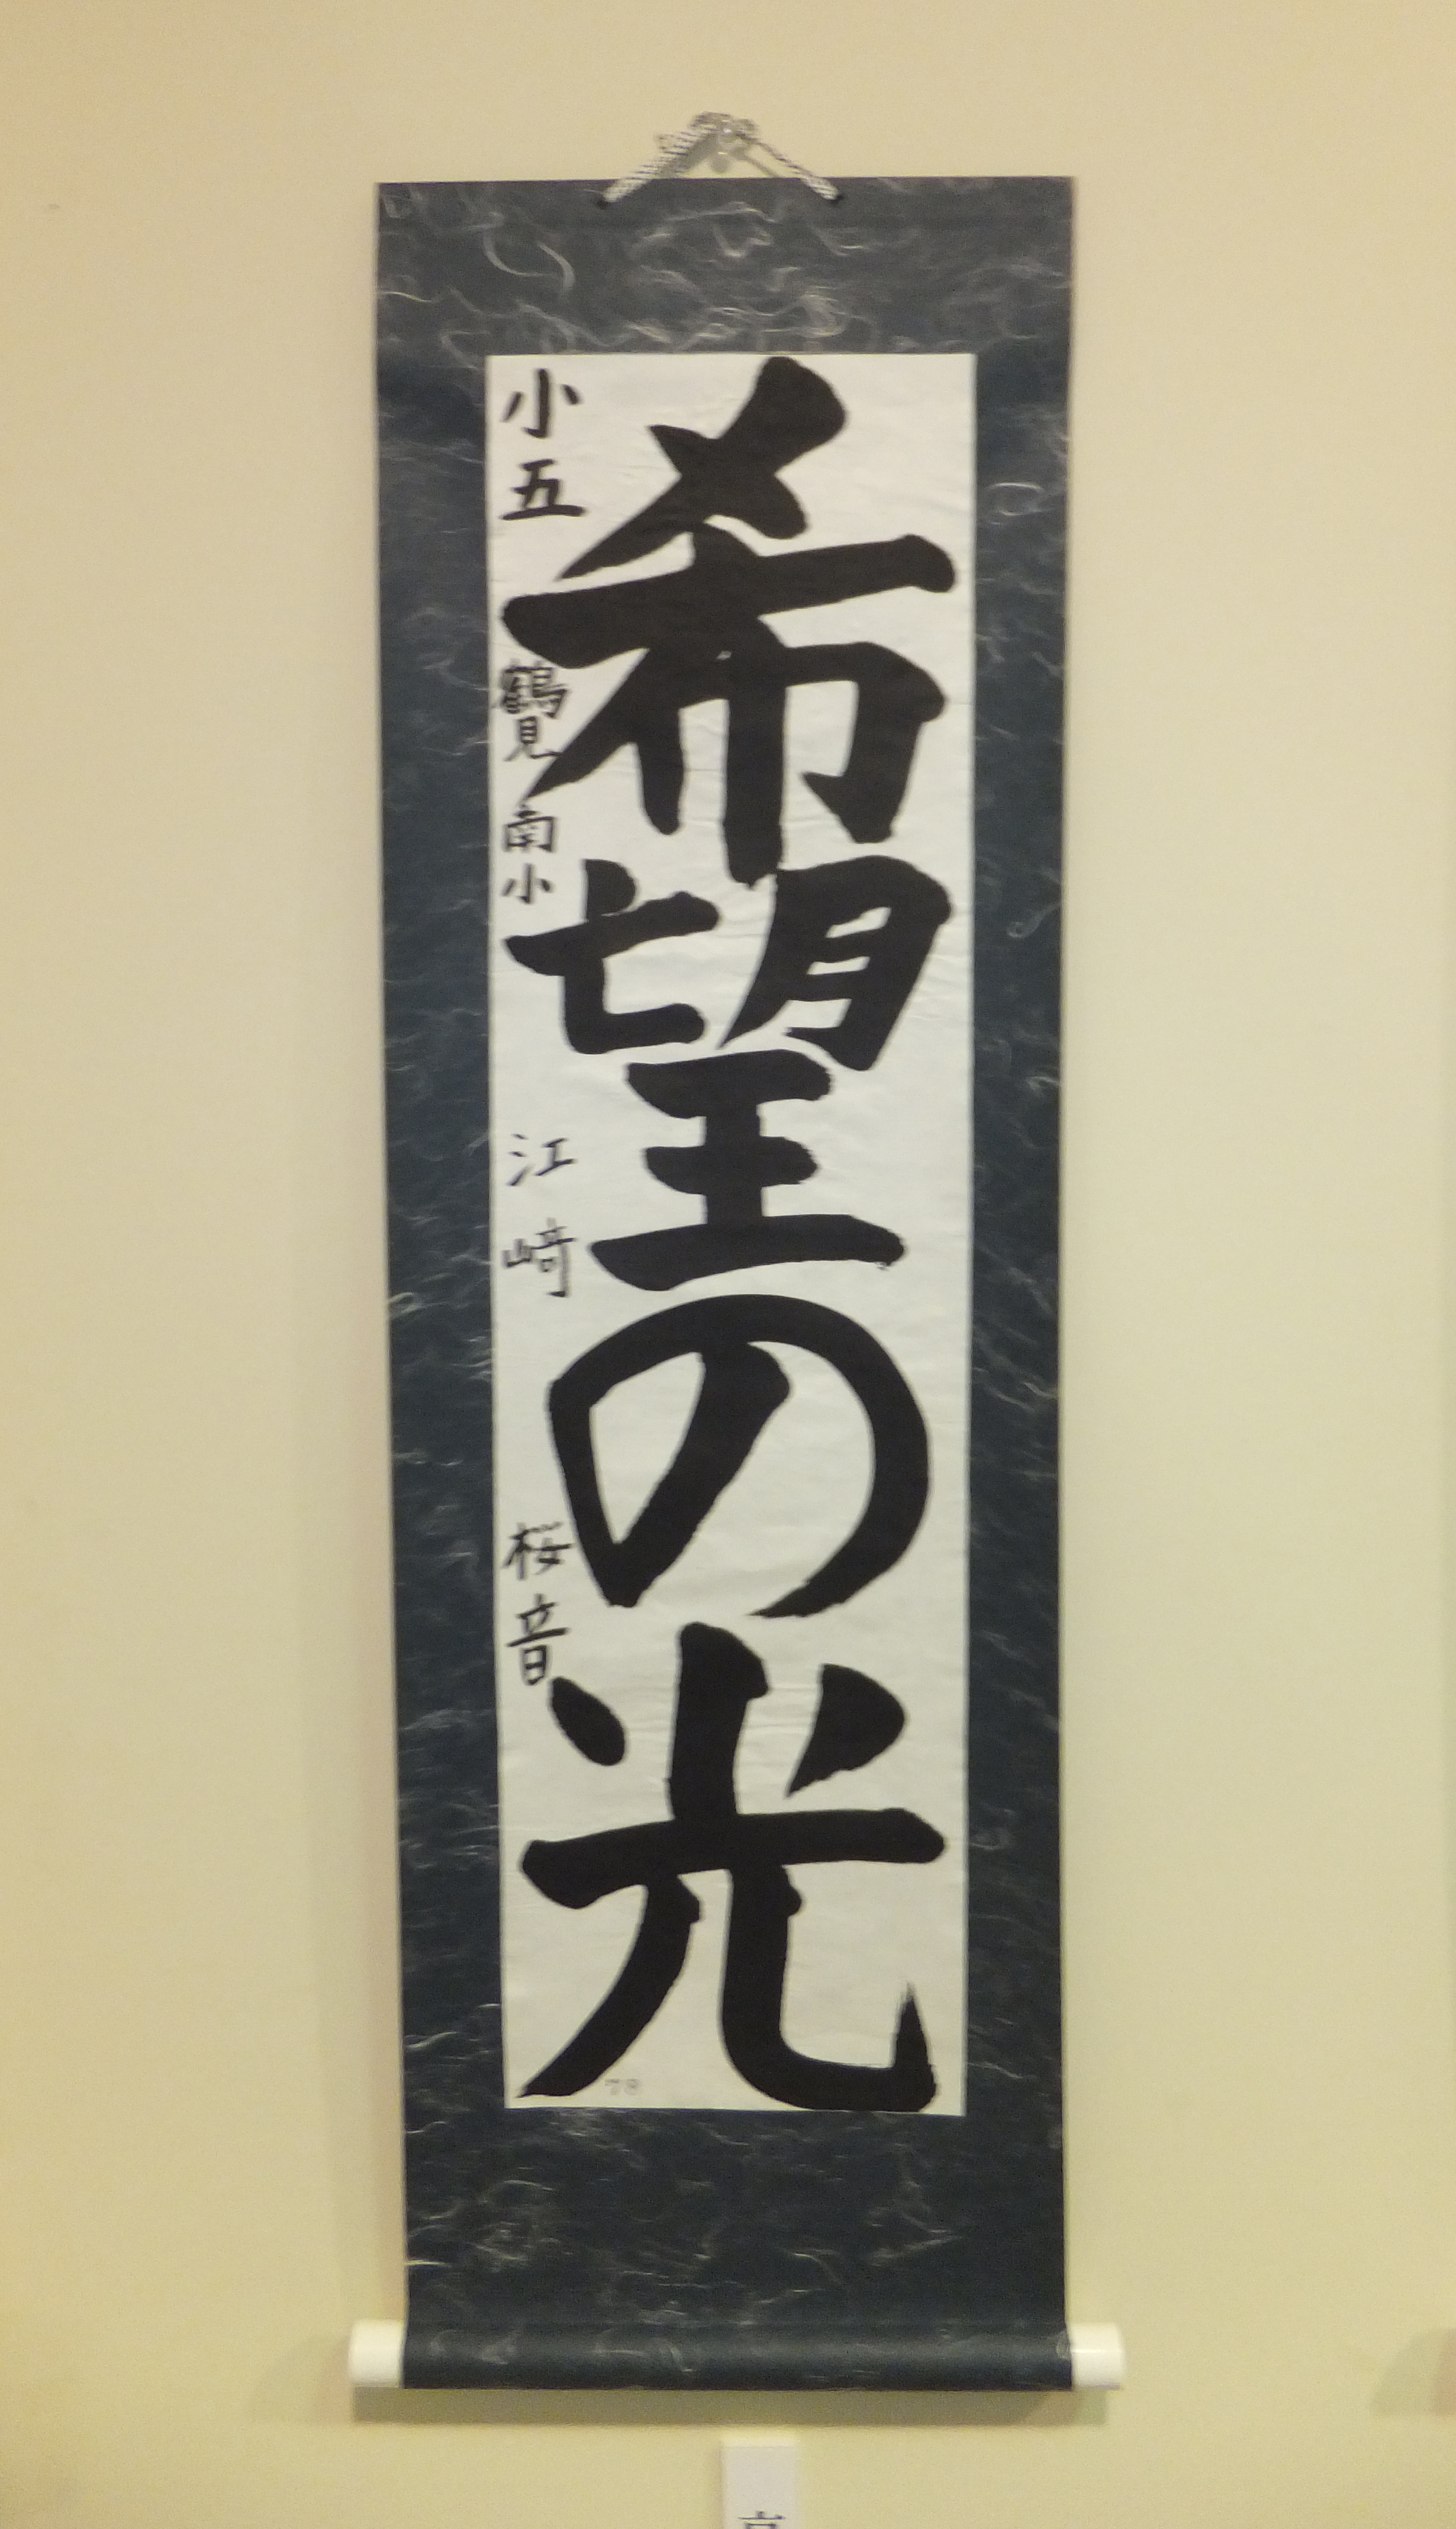 希望の光
小五 鶴見南小 江﨑 桜音
78